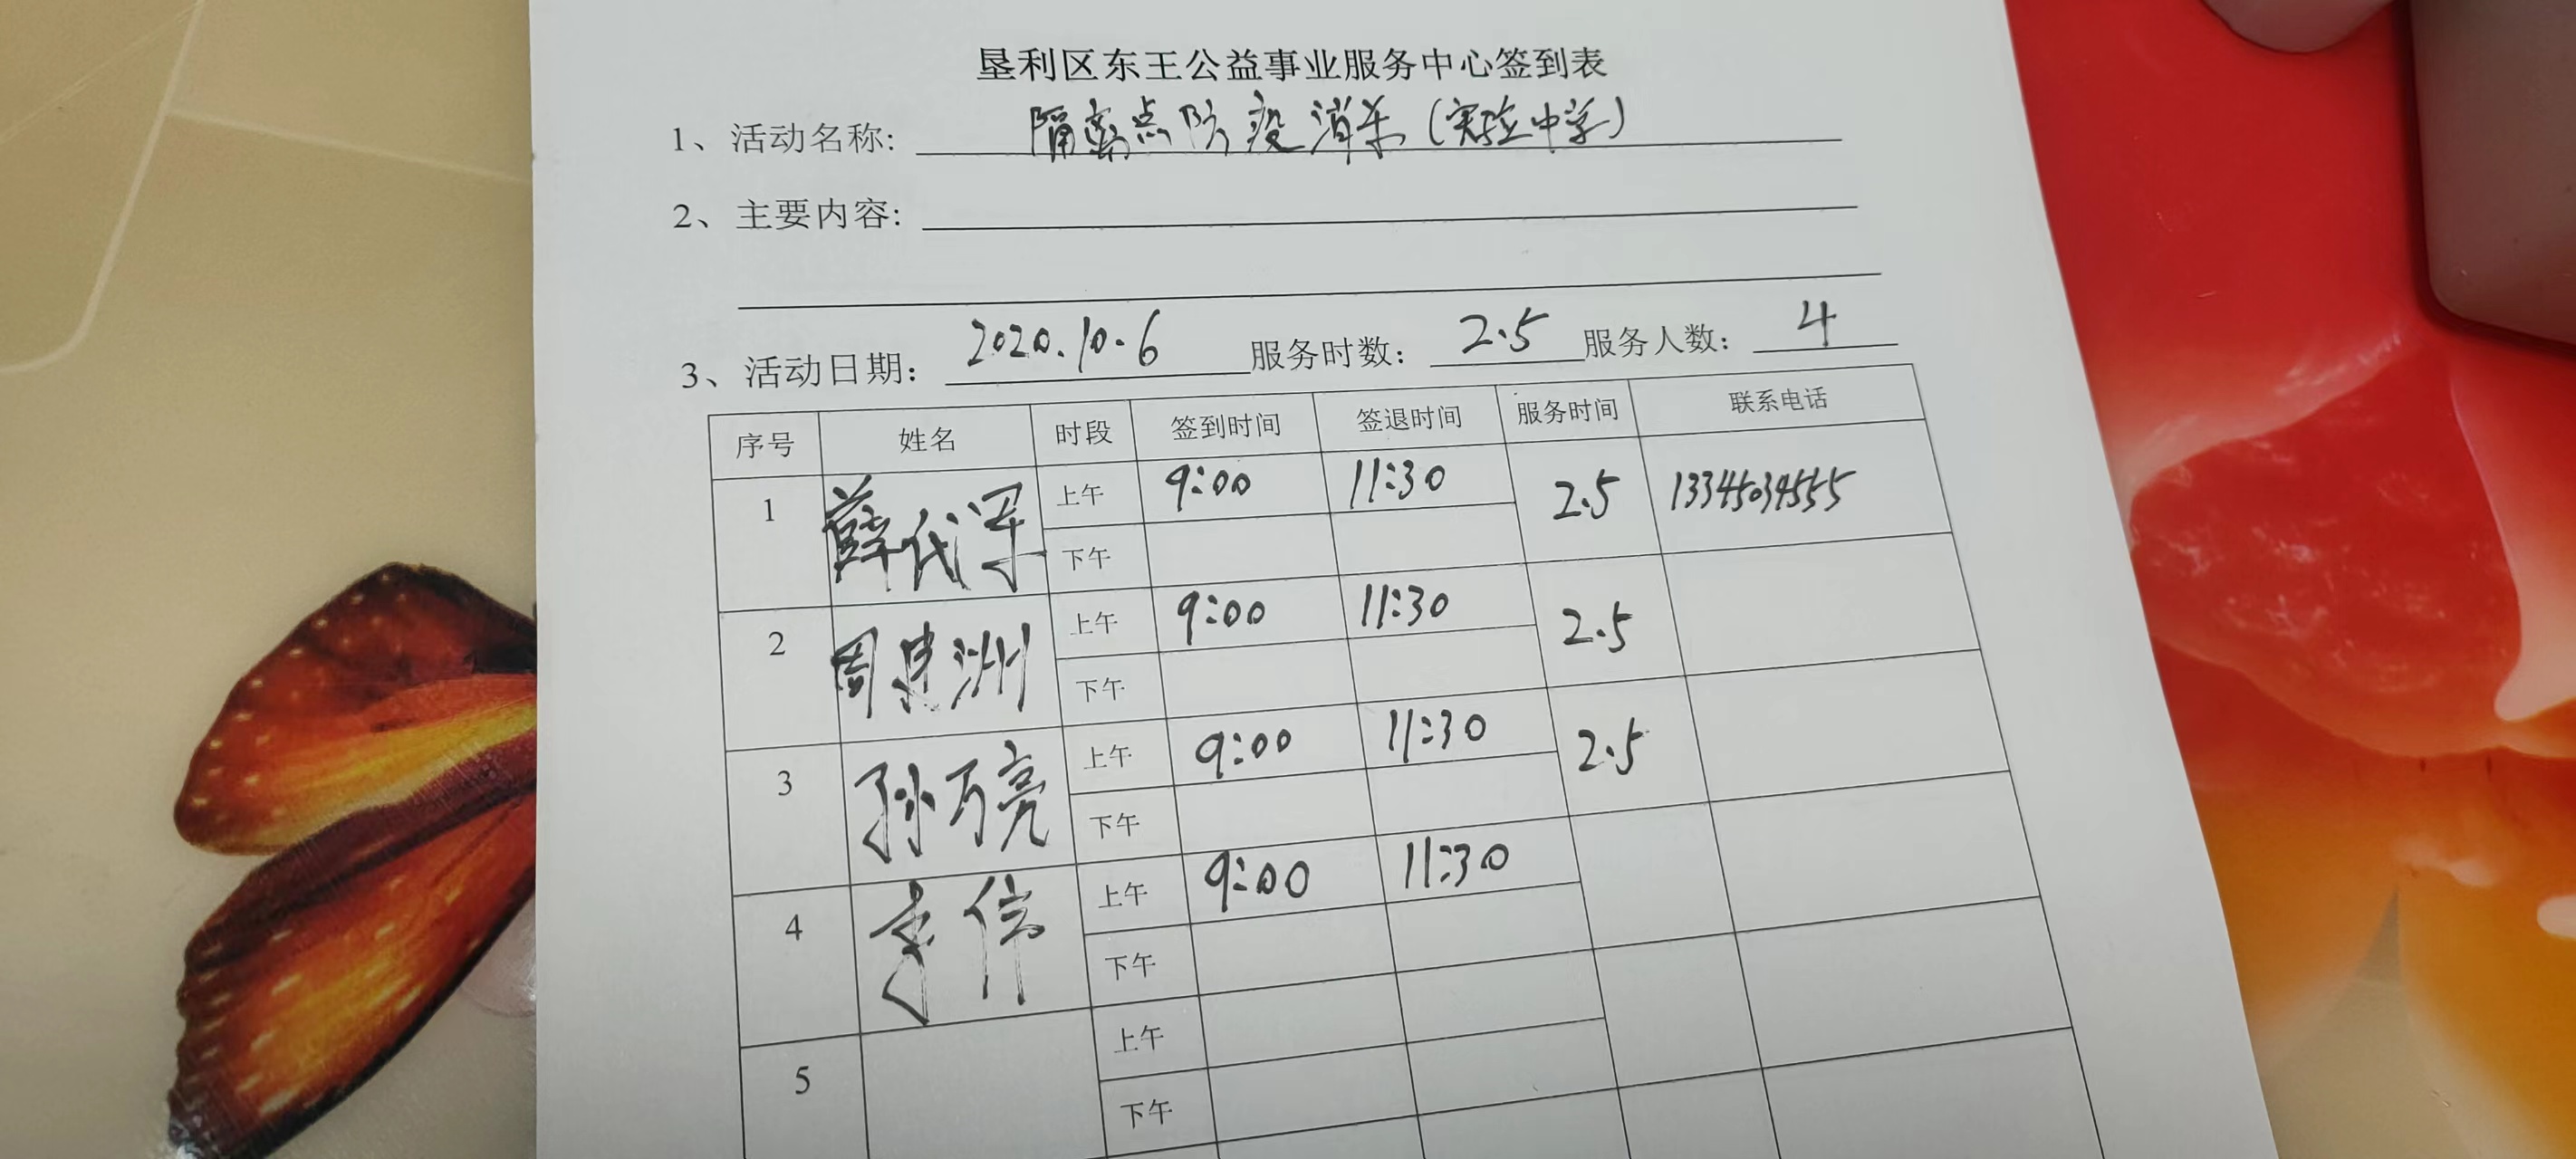 垦利区东王公益事业服务中心签到表
1、活动名称: 隔离点防疫消杀(实验中学)
2、主要内容:
3、活动日期: 2020.10.6 服务时数: 2.5 服务人数: 4
序号 姓名 时段 签到时间 签退时间 服务时间 联系电话
1 薛代军 上午 9:00 11:30 2.5 13345034555
下午
2 周建洲 上午 9:00 11:30 2.5
下午
3 孙万亮 上午 9:00 11:30 2.5
下午
4 李伟 上午 9:00 11:30
下午
5 上午
下午